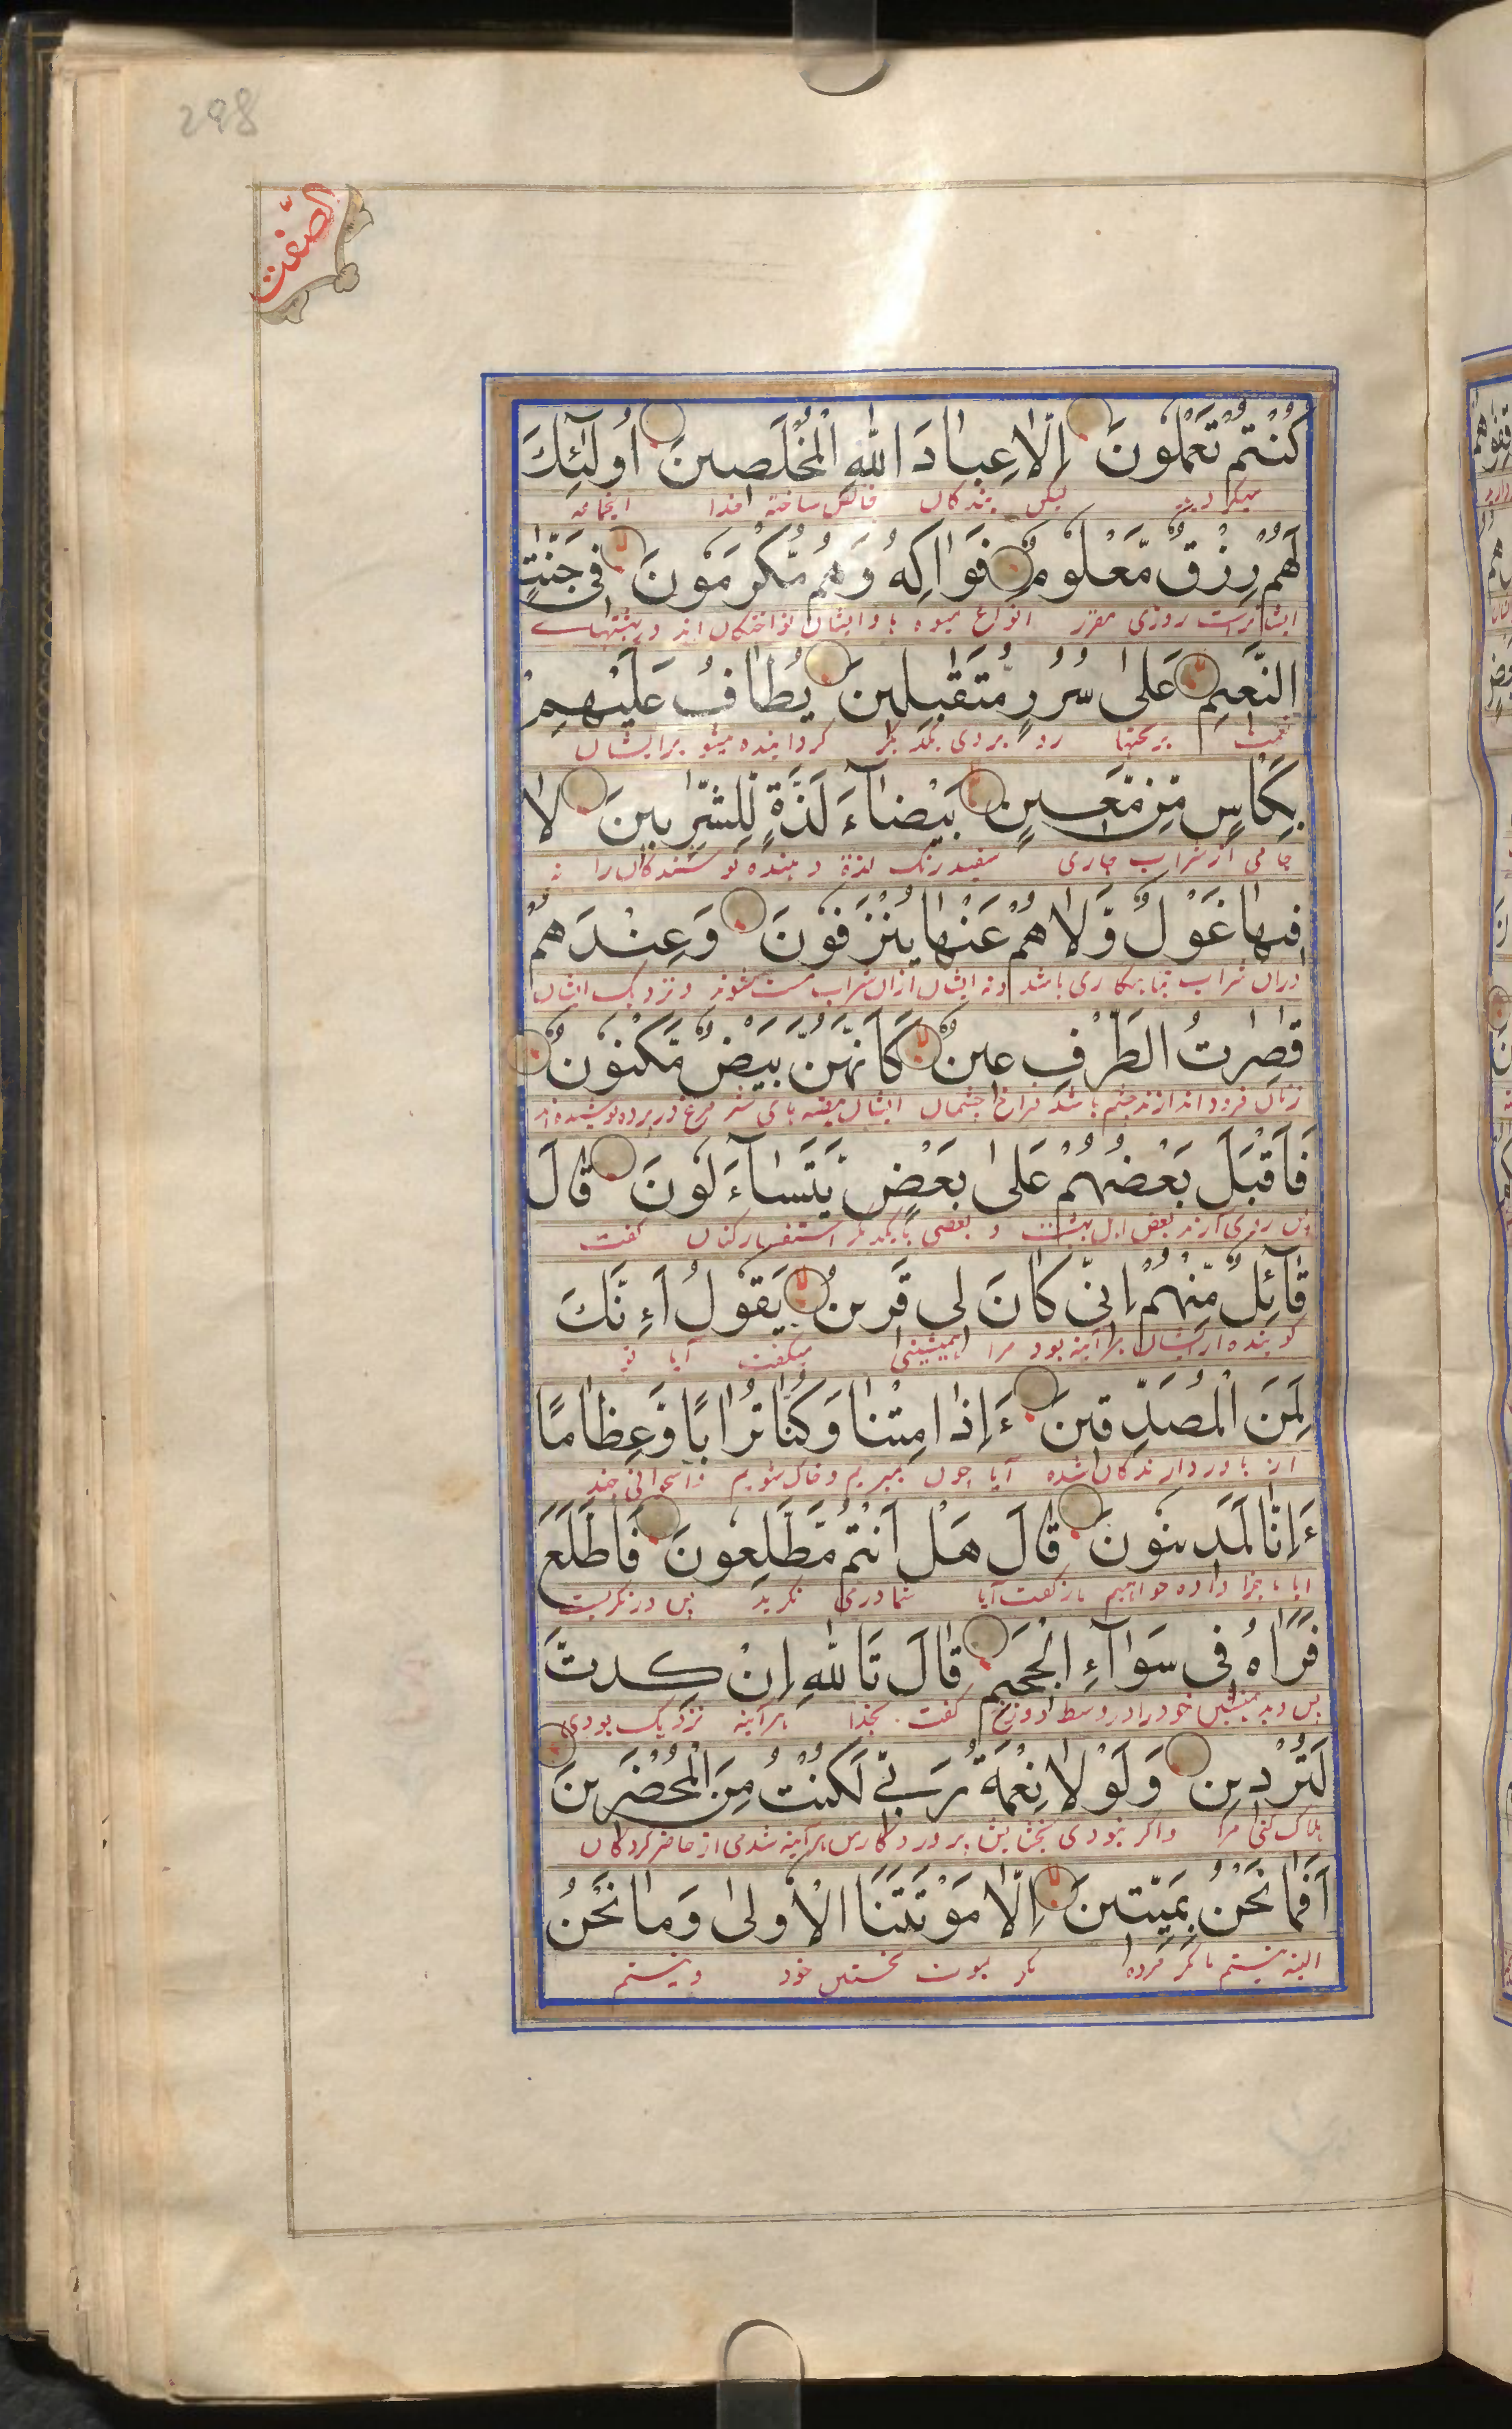 298
الصّٰفّٰت
كُنْتُمْ تَعْمَلُوْنَ اِلَّا عِبَادَ اللّٰهِ الْمُخْلَصِيْنَ اُولٰٓئِكَ
ليكن بندكان خالص ساخته خدا
لَهُمْ رِزْقٌ مَّعْلُوْمٌ فَوَاكِهُ وَهُمْ مُّكْرَمُوْنَ فِى جَنّٰتِ
ايشانراست روزى مقرر انواع ميوه ها وايشان نواختكان اند در بهشتهاے
النَّعِيْمِ عَلٰى سُرُرٍ مُّتَقٰبِلِيْنَ يُطَافُ عَلَيْهِمْ
نعمت برتختها رو بروى يكديكر كردانيده ميشو برايشان
بِكَاْسٍ مِّنْ مَّعِيْنٍ بَيْضَآءَ لَذَّةٍ لِّلشّٰرِبِيْنَ لَا
جامى از شراب جارى سفيد رنك لذة دهنده نوشندكان را نه
فِيْهَا غَوْلٌ وَّلَا هُمْ عَنْهَا يُنْزَفُوْنَ وَعِنْدَهُمْ
دران شراب تباهكارى باشد ونه ايشان ازان شراب مست شوند ونزديك ايشان
قٰصِرٰتُ الطَّرْفِ عِيْنٌ كَاَنَّهُنَّ بَيْضٌ مَّكْنُوْنٌ
زنان فرود اندازند چشم باشد فراخ چشمان ايشان بيضه ہاى شتر مرغ در پرده پوشيده اند
فَاَقْبَلَ بَعْضُهُمْ عَلٰى بَعْضٍ يَّتَسَآءَلُوْنَ قَالَ
پس روى آرند بعض اہل بہشت و بعضى بايكديكر استفسار كنان كفت
قَآئِلٌ مِّنْهُمْ اِنِّى كَانَ لِى قَرِيْنٌ يَقُوْلُ اَءِنَّكَ
كوينده از ايشان ہرآينه بود مرا ہمنشينى ميكفت آيا تو
لَمِنَ الْمُصَدِّقِيْنَ ءَاِذَا مِتْنَا وَكُنَّا تُرَابًا وَّعِظَامًا
از باور دارندكان شده آيا چون بميريم وخاك شويم واستخوانى چند
ءَاِنَّا لَمَدِيْنُوْنَ قَالَ هَلْ اَنْتُمْ مُّطَّلِعُوْنَ فَاطَّلَعَ
ايا ما جزا داده خواہيم باز كفت آيا شما درمى نكريد پس درنكريست
فَرَاٰهُ فِى سَوَآءِ الْجَحِيْمِ قَالَ تَاللّٰهِ اِنْ كِدْتَّ
پس ديد ہمنشين خود را در وسط دوزخ كفت بخدا ہرآينه نزديك بودى
لَتُرْدِيْنِ وَلَوْلَا نِعْمَةُ رَبِّى لَكُنْتُ مِنَ الْمُحْضَرِيْنَ
ہلاك كنى مرا واكر نبودى بخشايش پروردكار من ہرآينه شدمى از حاضر كردكان
اَفَمَا نَحْنُ بِمَيِّتِيْنَ اِلَّا مَوْتَتَنَا الْاُوْلٰى وَمَا نَحْنُ
البته نيستيم ما مكر مرده مكر بموت نخستين خود ونيستيم